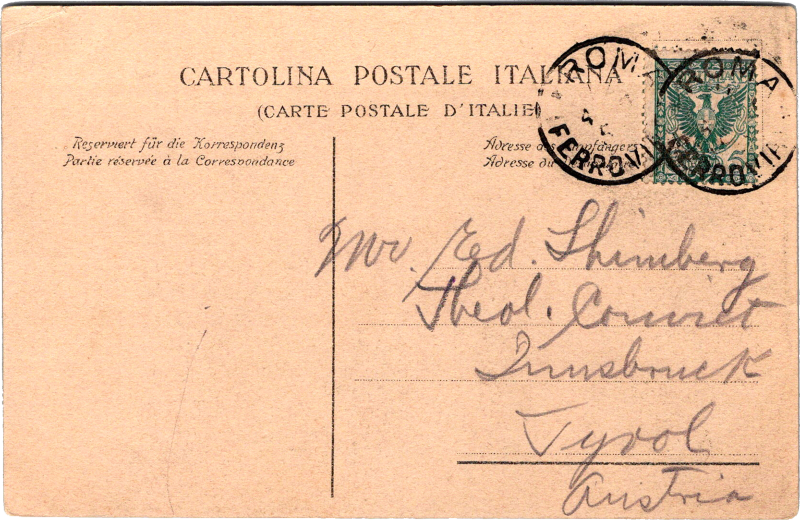 CARTOLINA POSTALE ITALIANA
(CARTE POSTALE D'ITALIE)
Reserviert für die Korrespondenz
Partie réservée à la Correspondance
Adresse des Empfängers
Adresse du
ROMA
FERROVIA
ROMA
FERROVIA
Mr. Ed. Shimberg
Theol. Convict
Innsbruck
Tyrol
Austria